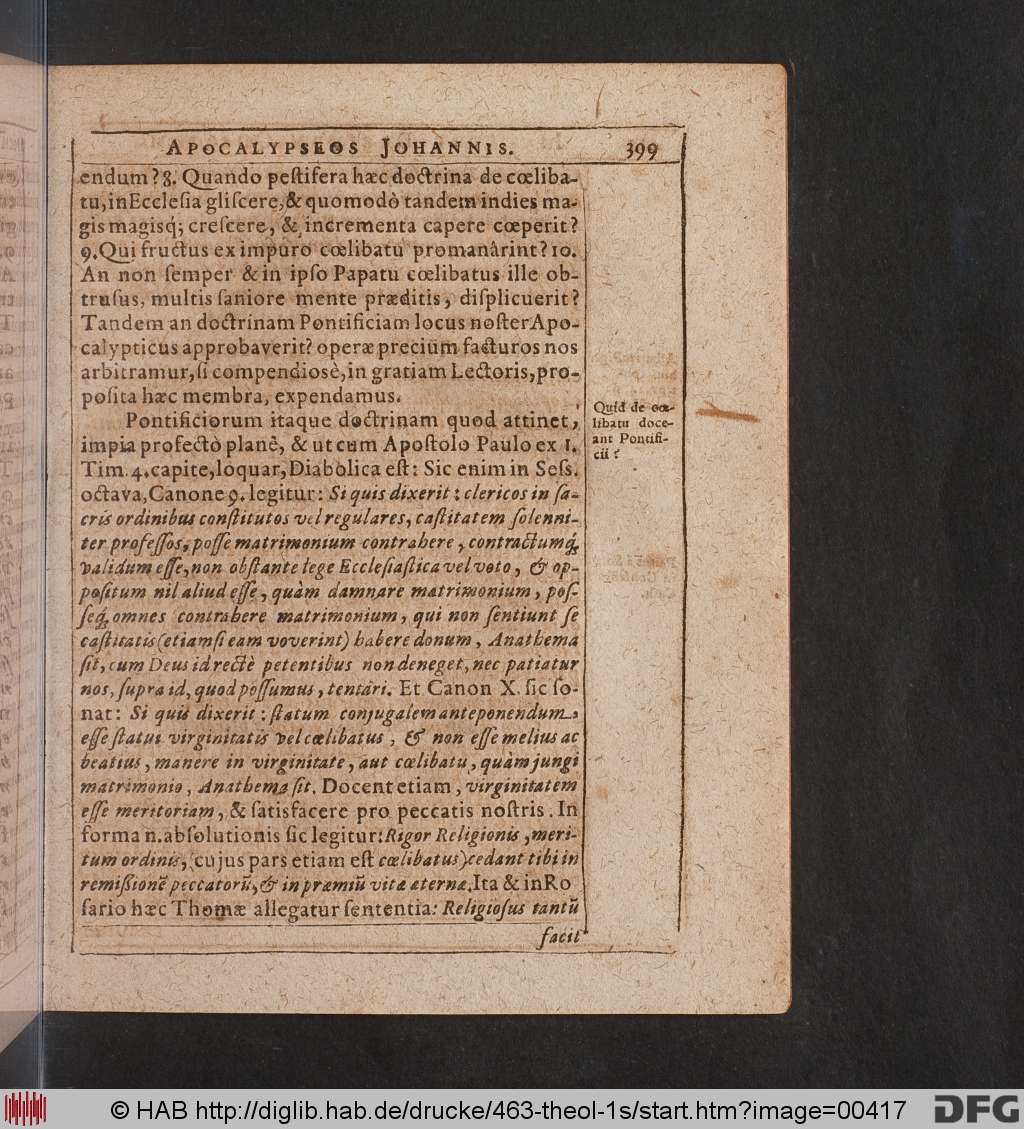 APOCALYPSEOS JOHANNIS. 399
endum? 8. Quando peſtifera hæc doctrina de cœliba-
tu, in Eccleſia gliſcere, & quomodò tandem indies ma-
gis magisq́; creſcere, & incrementa capere cœperit?
9. Qui fructus ex impuro cœlibatu promanârint? 10.
An non ſemper & in ipſo Papatu cœlibatus ille ob-
truſus, multis ſaniore mente præditis, diſplicuerit?
Tandem an doctrinam Pontificiam locus noſter Apo-
calypticus approbaverit? operæ precium facturos nos
arbitramur, ſi compendiosè, in gratiam Lectoris, pro-
poſita hæc membra, expendamus.
Pontificiorum itaque doctrinam quod attinet,
impia profectò planè, & ut cum Apoſtolo Paulo ex 1.
Tim. 4. capite, loquar, Diabolica eſt: Sic enim in Seſs.
octava, Canone 9. legitur: Si quis dixerit: clericos in ſa-
cris ordinibus conſtitutos vel regulares, caſtitatem ſolenni-
ter profeſſos, poſſe matrimonium contrahere, contractumq́;
validum eſſe, non obſtante lege Eccleſiaſtica vel voto, & op-
poſitum nil aliud eſſe, quàm damnare matrimonium, poſ-
ſeq́; omnes contrahere matrimonium, qui non ſentiunt ſe
caſtitatis (etiamſi eam voverint) habere donum, Anathema
ſit, cum Deus id rectè petentibus non deneget, nec patiatur
nos, ſupra id, quod poſſumus, tentari. Et Canon X. ſic ſo-
nat: Si quis dixerit: ſtatum conjugalem anteponendum
eſſe ſtatui virginitatis vel cœlibatus, & non eſſe melius ac
beatius, manere in virginitate, aut cœlibatu, quàm jungi
matrimonio, Anathema ſit. Docent etiam, virginitatem
eſſe meritoriam, & ſatisfacere pro peccatis noſtris. In
forma n. abſolutionis ſic legitur: Rigor Religionis, meri-
tum ordinis, (cujus pars etiam eſt cœlibatus) cedant tibi in
remißionē peccatorū, & in præmiū vitæ æternæ. Ita & in Ro
ſario hæc Thomæ allegatur ſententia: Religioſus tantū
facit
Quid de cœ-
libatu doce-
ant Pontifi-
cii?
© HAB http://diglib.hab.de/drucke/463-theol-1s/start.htm?image=00417
DFG